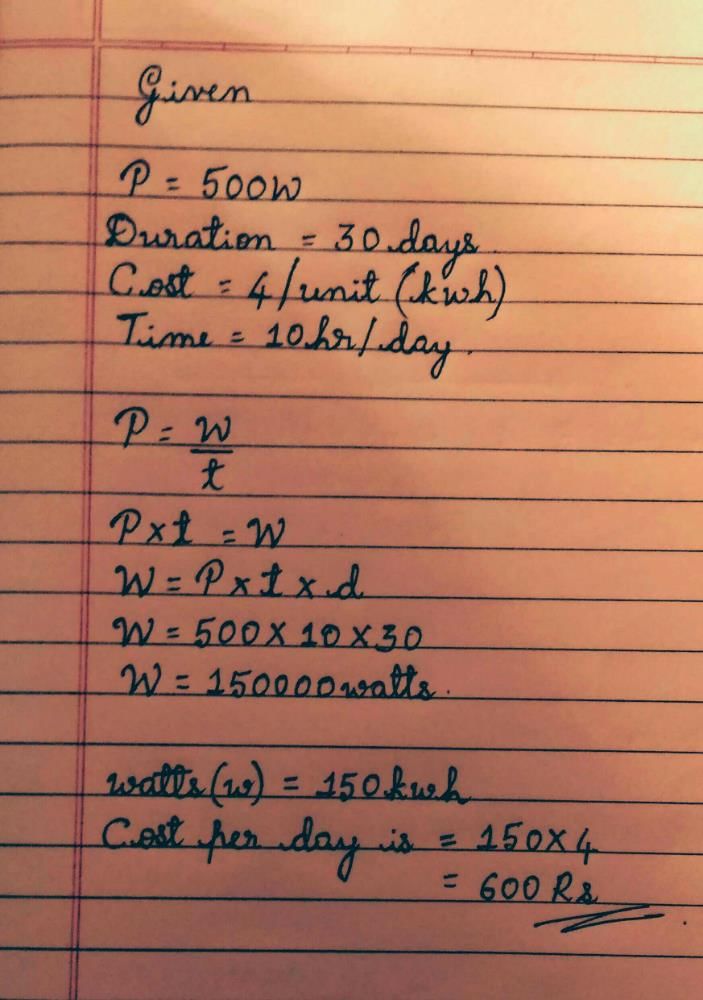 Given
P = 500W
Duration = 30 days
Cost = 4/unit (kwh)
Time = 10hr/day.
P = W
t
P×t = W
W = P × t × d
W = 500 × 10 × 30
W = 150000watts.
watts(w) = 150kwh
Cost per day is = 150×4
= 600 Rs